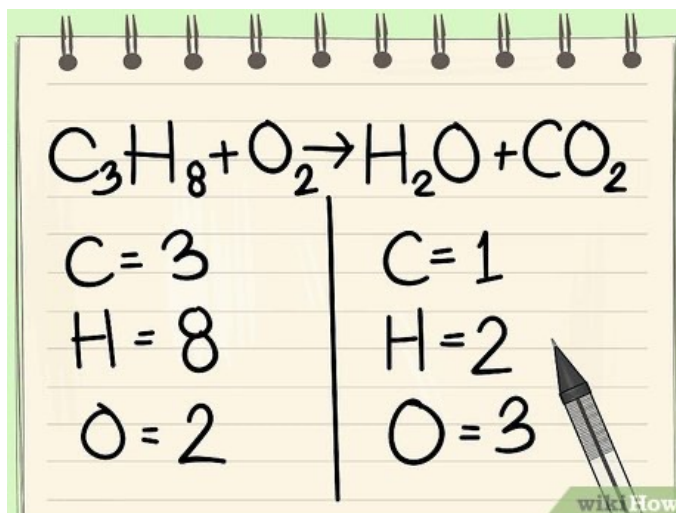 C₃H₈ + O₂ → H₂O + CO₂
C = 3
H = 8
O = 2
C = 1
H = 2
O = 3
wikiHow